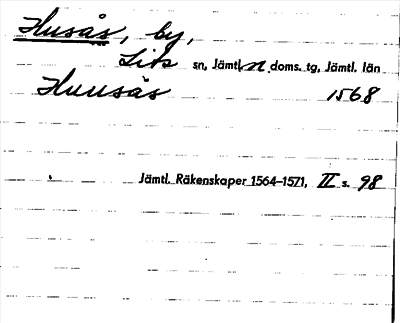 Husås, by,
Lits sn, Jämtl. n. doms. tg, Jämtl. län
Huusås 1568
Jämtl. Räkenskaper 1564–1571, II s. 98